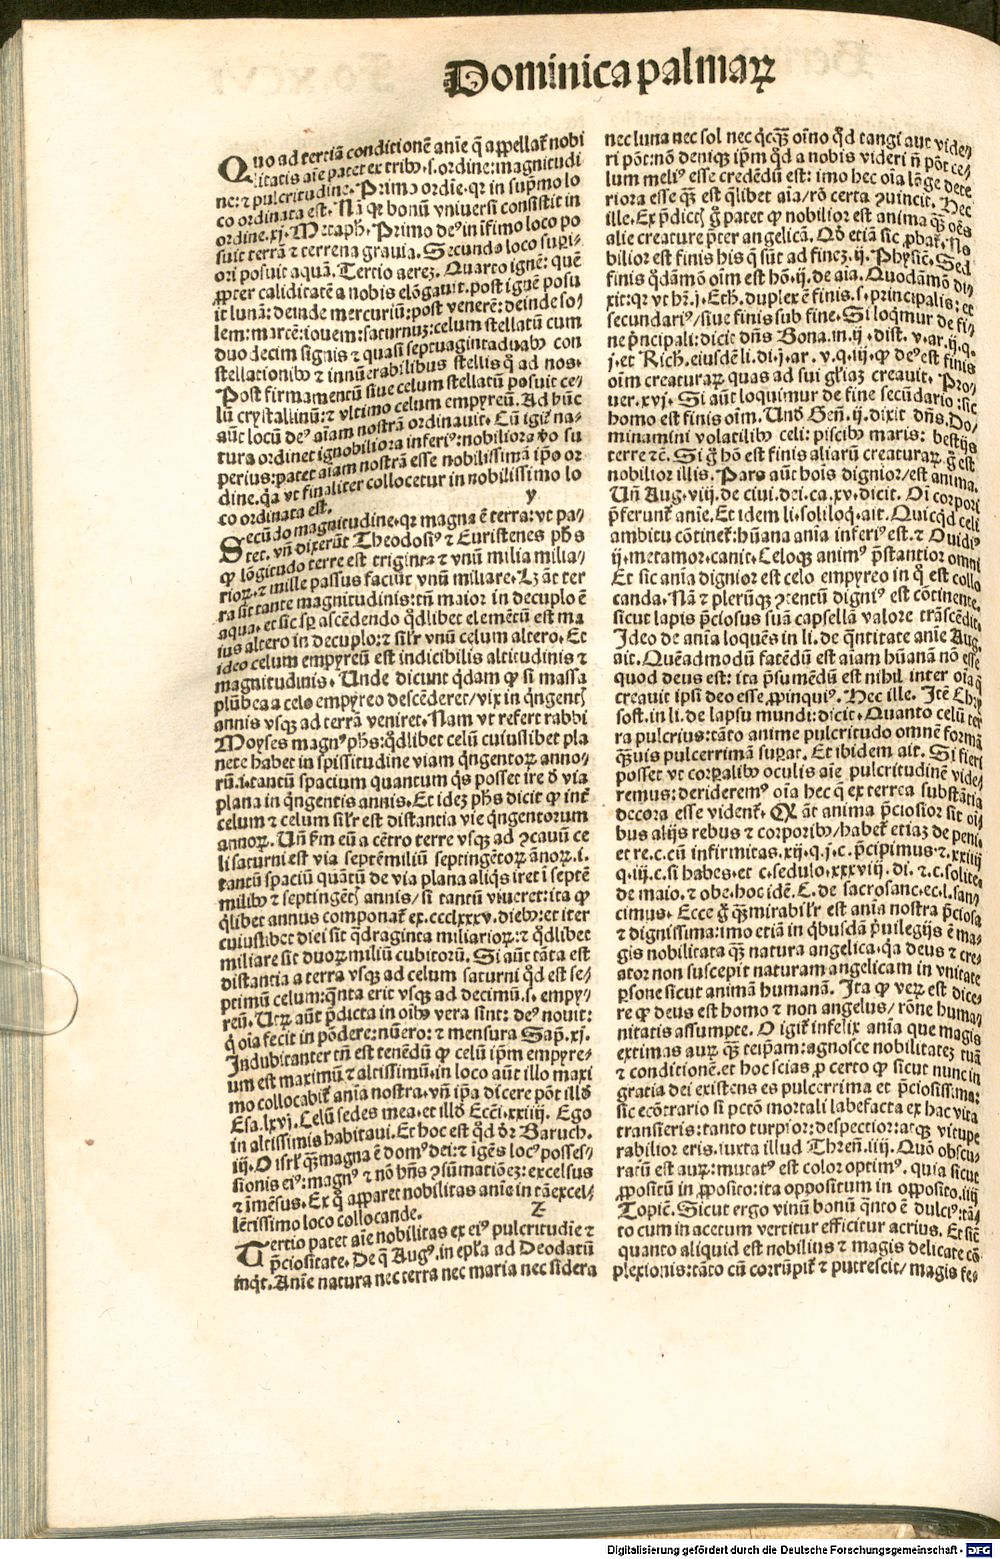 Dominica palmaꝝ
Quo ad tertiā conditionē anīe q̄ appellat̄ nobi
litatis aīe patet ex tribꝰ.s.ordine:magnitudi
ne:⁊ pulcritudine. Primo ordīe.qꝛ in sup̄mo lo
co ordinata est. Nā qꝛ bonū vniuersi consistit in
ordine.xj. Metaph. Primo deꝰ in īfimo loco po
suit terrā ⁊ terrena grauia. Secundo loco supi-
ori posuit aquā. Tertio aereꝫ. Quarto ignē: quē
ꝓpter caliditatē a nobis elōgauit. post ignē posu
it lunā: deinde mercuriū: post venerē: deinde so-
lem: martē: iouem: saturnuꝫ: celum stellatū cum
duodecim signis ⁊ quasi septuagintaduabꝰ con
stellationibꝰ ⁊ innūerabilibus stellis q̄ ad nos.
Post firmamentū siue celum stellatū posuit ce-
lū crystallinū: ⁊ vltimo celum empyreū. Ad hūc
aūt locū deꝰ aīam nostrā ordinauit. Cū igit̄ na-
tura ordinet ignobiliora inferiꝰ: nobiliora vo su
perius: patet aīam nostrā esse nobilissimā ip̄o or
dine. q̄a vt finaliter collocetur in nobilissimo lo
co ordinata est. y
Secūdo magnitudine. qꝛ magna ē terra: vt pa-
tet. vn̄ dixerūt Theodosiꝰ ⁊ Euristenes ph̄s
ꝙ lōgitudo terre est triginta ⁊ vnū milia milia-
rioꝝ. ⁊ mille passus faciūt vnū miliare. Lꝫ āt ter
ra sit tante magnitudinis: tn̄ maior in decuplo ē
aqua. et sic sp̄ ascēdendo q̄dlibet elemētū est ma
ius altero in decuplo: ⁊ sil'r vnū celum altero. Et
ideo celum empyreū est indicibilis altitudinis ⁊
magnitudinis. Unde dicunt q̄dam ꝙ si massa
plūbea a celo empyreo descēderet/vix in q̄ngentꝭ
annis vsqꝫ ad terrā veniret. Nam vt refert rabbi
Moyses magnꝰ ph̄s: q̄dlibet celū cuiuslibet pla
nete habet in spissitudine viam q̄ngentoꝝ anno-
rū.i.tantū spacium quantum q̄s posset ire d̄ via
plana in q̄ngentis annis. Et ideꝫ ph̄s dicit ꝙ int̄
celum ⁊ celum sil'r est distantia vie q̄ngentorum
annoꝝ. Un̄ ẜm eū a cētro terre vsqꝫ ad ꝯcauū ce
li saturni est via septēmiliū septingētoꝝ ānoꝝ.i.
tantū spaciū quātū de via plana aliq̄s iret ī septē
milibꝰ ⁊ septingētꝭ annis/si tantū viueret: ita ꝙ
q̄libet annus componat̄ ex.ccclxxxv. diebꝰ: et iter
cuiuslibet diei sit q̄draginta miliarioꝝ: ⁊ q̄dlibet
miliare sit duoꝝ miliū cubitorū. Si aūt tāta est
distantia a terra vsqꝫ ad celum saturni q̄d est se-
ptimū celum: q̄nta erit vsqꝫ ad decimū.s. empy-
reū. Utꝝ aūt p̄dicta in oībꝰ vera sint: deꝰ nouit:
q̄ oīa fecit in pōdere: nūero: ⁊ mensura Sap̄.xj.
Indubitanter tn̄ est tenēdū ꝙ celū ip̄m empyre-
um est maximū ⁊ altissimū. in loco aūt illo maxi
mo collocabit̄ anīa nostra. vn̄ ip̄a dicere pōt illd̄
Esa.lxvj. Celū sedes mea. et illd̄ Ecc̄i.xxiiij. Ego
in altissimis habitaui. Et hoc est q̄d d̄r Baruch.
iij. O isrl̄ q̄ꝫ magna ē domꝰ dei: ⁊ īgēs locꝰ posses-
sionis eiꝰ: magnꝰ ⁊ nō hn̄s ꝯsūmatiōeꝫ: excelsus
⁊ īmēsus. Ex q̄ apparet nobilitas anīe in tā excel-
lētissimo loco collocande. z
Tertio patet aīe nobilitas ex eiꝰ pulcritudīe ⁊
p̄ciositate. De q̄ Augꝰ. in ep̄la ad Deodatū
inq̄t. Anīe natura nec terra nec maria nec sidera
nec luna nec sol nec q̄cq̄ꝫ oīno q̄d tangi aut vide-
ri pōt: nō deniqꝫ ip̄m q̄d a nobis videri n̄ pōt ce-
lum meliꝰ esse credēdū est: imo hec oīa lōge dete
riora esse q̄ꝫ est q̄libet aīa/rō certa ꝯuincit. Hec
ille. Ex p̄dictꝭ g̊ patet ꝙ nobilior est anima q̄ꝫ oēs
alie creature p̄ter angelicā. Qd̄ etiā sic ꝓbat̄. No
bilior est finis his q̄ sūt ad fineꝫ.ij. Physicꝭ. Sed
finis q̄dāmō oīm est hō.ij. de aīa. Quodāmō di-
xit: qꝛ vt hr̄.j. Eth. duplex ē finis.s. principalis: et
secundariꝰ/siue finis sub fine. Si loq̄mur de fi-
ne p̄ncipali: dicit dn̄s Bona. in.ij. dist. v. ar. ij. q.
j. et Rich. eiusdē li. di.j. ar. v. q. iij. ꝙ deꝰ est finis
oīm creaturaꝝ quas ad sui gl'iaꝫ creauit. Pro-
uer.xvj. Si aūt loquimur de fine secūdario: sic
homo est finis oīm. Und̄ Gen̄.ij. dixit dn̄s. Do-
minamini volatilibꝰ celi: piscibꝰ maris: bestijs
terre ⁊c. Si g̊ hō est finis aliarū creaturaꝝ. g̊ est
nobilior illis. Pars aūt hoīs dignior/est anima.
Un̄ Aug. viij. de ciui. dei. ca. xv. dicit. Oī corpori
p̄ferunt̄ anīe. Et idem li. soliloq̄. ait. Quicq̄d celi
ambitu cōtinet̄: hūana anīa inferiꝰ est. ⁊ Ouidiꝰ
ij. metamor. canit. Celoqꝫ animꝰ p̄stantior omni
Et sic anīa dignior est celo empyreo in q̄ est collo
canda. Nā ⁊ plerūqꝫ ꝯtentū digniꝰ est cōtinente.
sicut lapis p̄ciosus suā capsellā valore trāscēdit.
Ideo de anīa loquēs in li. de q̄ntitate anīe Aug.
ait. Quēadmodū fatēdū est aīam hūanā nō esse
quod deus est: ita p̄sumēdū est nihil inter oīa q̄
creauit ipsi deo esse ꝓpinquiꝰ. Hec ille. Itē Chry
sost. in li. de lapsu mundi: dicit. Quanto celū ter
ra pulcrius: tāto anime pulcritudo omnē formā
q̄ꝫuis pulcerrimā supat. Et ibidem ait. Si fieri
posset vt corpalibꝰ oculis aīe pulcritudinē vide-
remus: derideremꝰ oīa hec q̄ ex terrea substātia
decora esse vident̄. Qꝛ āt anima p̄ciosior sit oī-
bus alijs rebus ⁊ corporibꝰ/habet̄ etiaꝫ de peni.
et re. c. cū infirmitas. xij. q. j. c. p̄cipimus. ⁊. xxiiij
q. iij. c. si habes. et c. sedulo. xxxviij. di. ⁊. c. solite.
de maio. ⁊ obe. hoc idē. C. de sacrosanc. ec. l. san-
cimus. Ecce g̊ q̄ꝫ mirabil'r est anīa nostra p̄ciosa
⁊ dignissima: imo etiā in q̄busdā p̄uilegijs ē ma-
gis nobilitata q̄ꝫ natura angelica. q̄a deus ⁊ cre-
ator non suscepit naturam angelicam in vnitate
ꝑsone sicut animā humanā. Ita ꝙ veꝝ est dice-
re ꝙ deus est homo ⁊ non angelus/rōne huma-
nitatis assumpte. O igit̄ infelix anīa que magis
extimas auꝝ q̄ꝫ teip̄am: agnosce nobilitateꝫ tuā
⁊ conditionē. et hoc scias ꝑ certo ꝙ sicut nunc in
gratia dei existens es pulcerrima et p̄ciosissima:
sic ecōtrario si pctō mortali labefacta ex hac vita
transieris: tanto turpior: despectior: atqꝫ vitupe
rabilior eris. iuxta illud Thren̄.iiij. Quō obscu-
ratū est auꝝ: mutatꝰ est color optimꝰ. quia sicut
ꝓpositū in ꝓposito: ita oppositum in opposito. iiij
Topic̄. Sicut ergo vinū bonū q̄nto ē dulciꝰ: tā-
to cum in acetum vertitur efficitur acrius. Et sic
quanto aliquid est nobilius ⁊ magis delicate cō
plexionis: tāto cū corrūpit̄ ⁊ putrescit/magis fe-
Digitalisierung gefördert durch die Deutsche Forschungsgemeinschaft - DFG